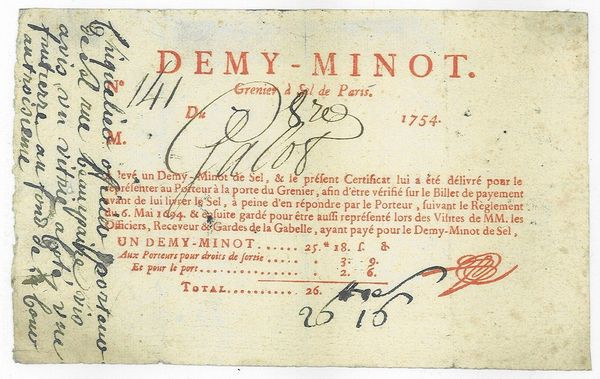 DEMY-MINOT.
Grenier à Sel de Paris.
N° 141
Du 8bre 1754.
M.
levé un Demy-Minot de Sel, & le présent Certificat lui a été délivré pour le
représenter au Porteur à la porte du Grenier, afin d'être vérifié sur le Billet de payement
avant de lui livrer le Sel, à peine d'en répondre par le Porteur, suivant le Règlement
du 6. Mai 1694. & ensuite gardé pour être aussi représenté lors des Visites de MM. les
Officiers, Receveur & Gardes de la Gabelle, ayant payé pour le Demy-Minot de Sel,
UN DEMY-MINOT...... 25.# 18. s. &
Aux Porteurs pour droits de sortie.... » 3. 9.
Et pour le port............ » 2. 6.
TOTAL........... 26.
26 16
de sel rue
vis
a vis un vitrié a coté, une
fruitierre au fond de la cour
au troisieme